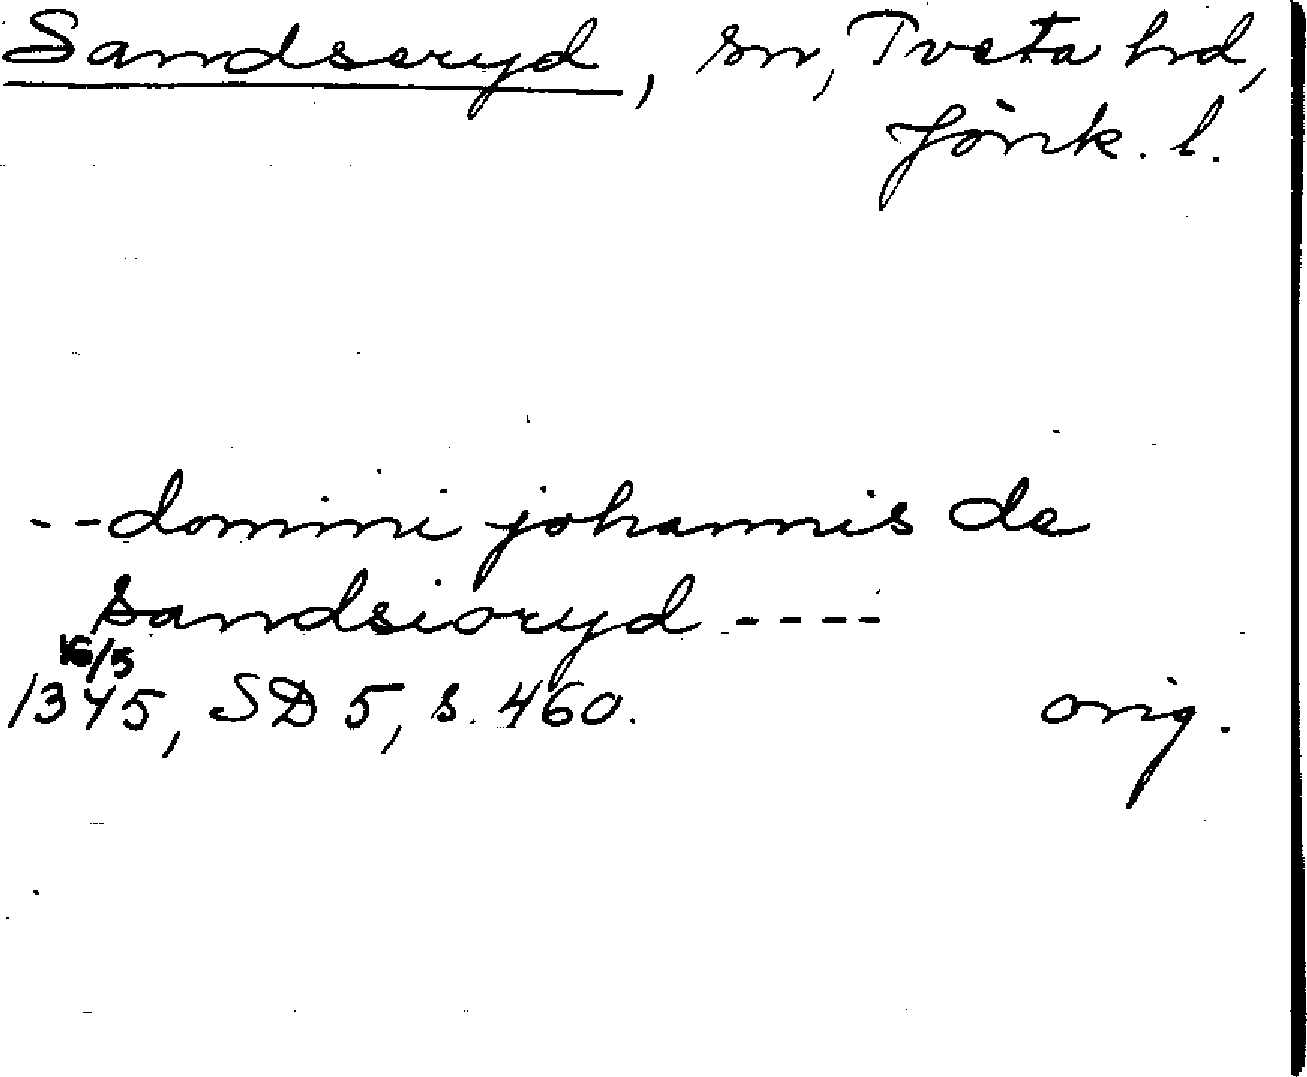 Sandseryd, sn, Tveta hd,
Jönk. l.
--domini johannis de
sandsioryd ----
16/5
1345, SD 5, s. 460. orig.